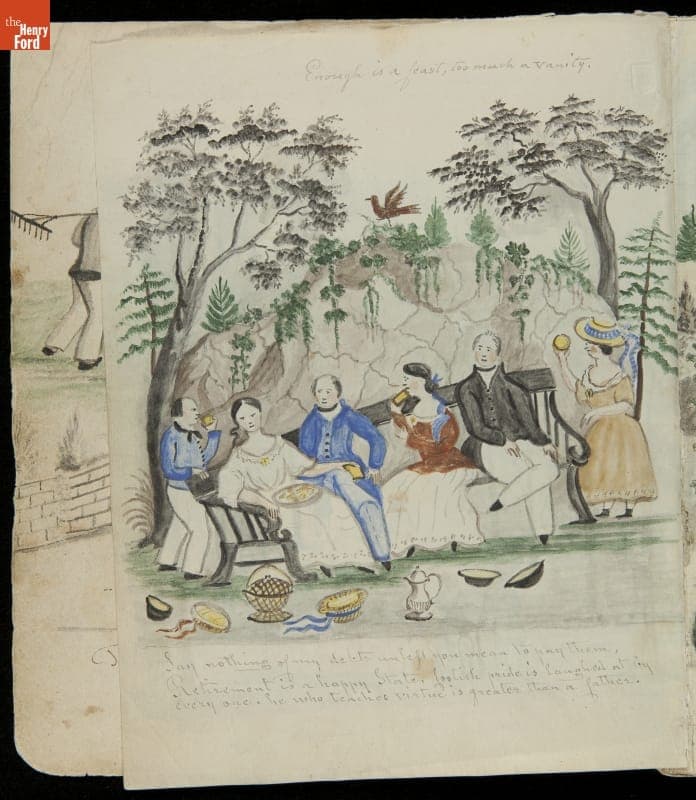 the
Henry
Ford
Enough is a feast, too much a vanity.
Say nothing of my debts unless you mean to pay them,
Retirement is a happy State, foolish pride is laughed at by
every one. he who teaches virtue is greater than a father.
T